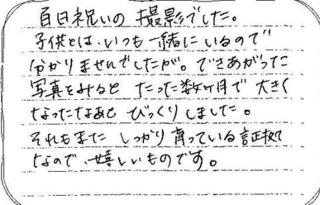 百日祝いの撮影でした。
子供とは、いつも一緒にいるので
分かりませんでしたが。できあがった
写真をみると たった数ヶ月で大きく
なったなあと びっくりしました。
それもまた しっかり育っている証拠
なので、嬉しいものです。